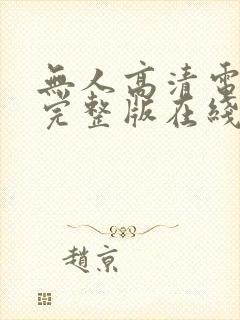 無人高清電
完整版在綫
趙京